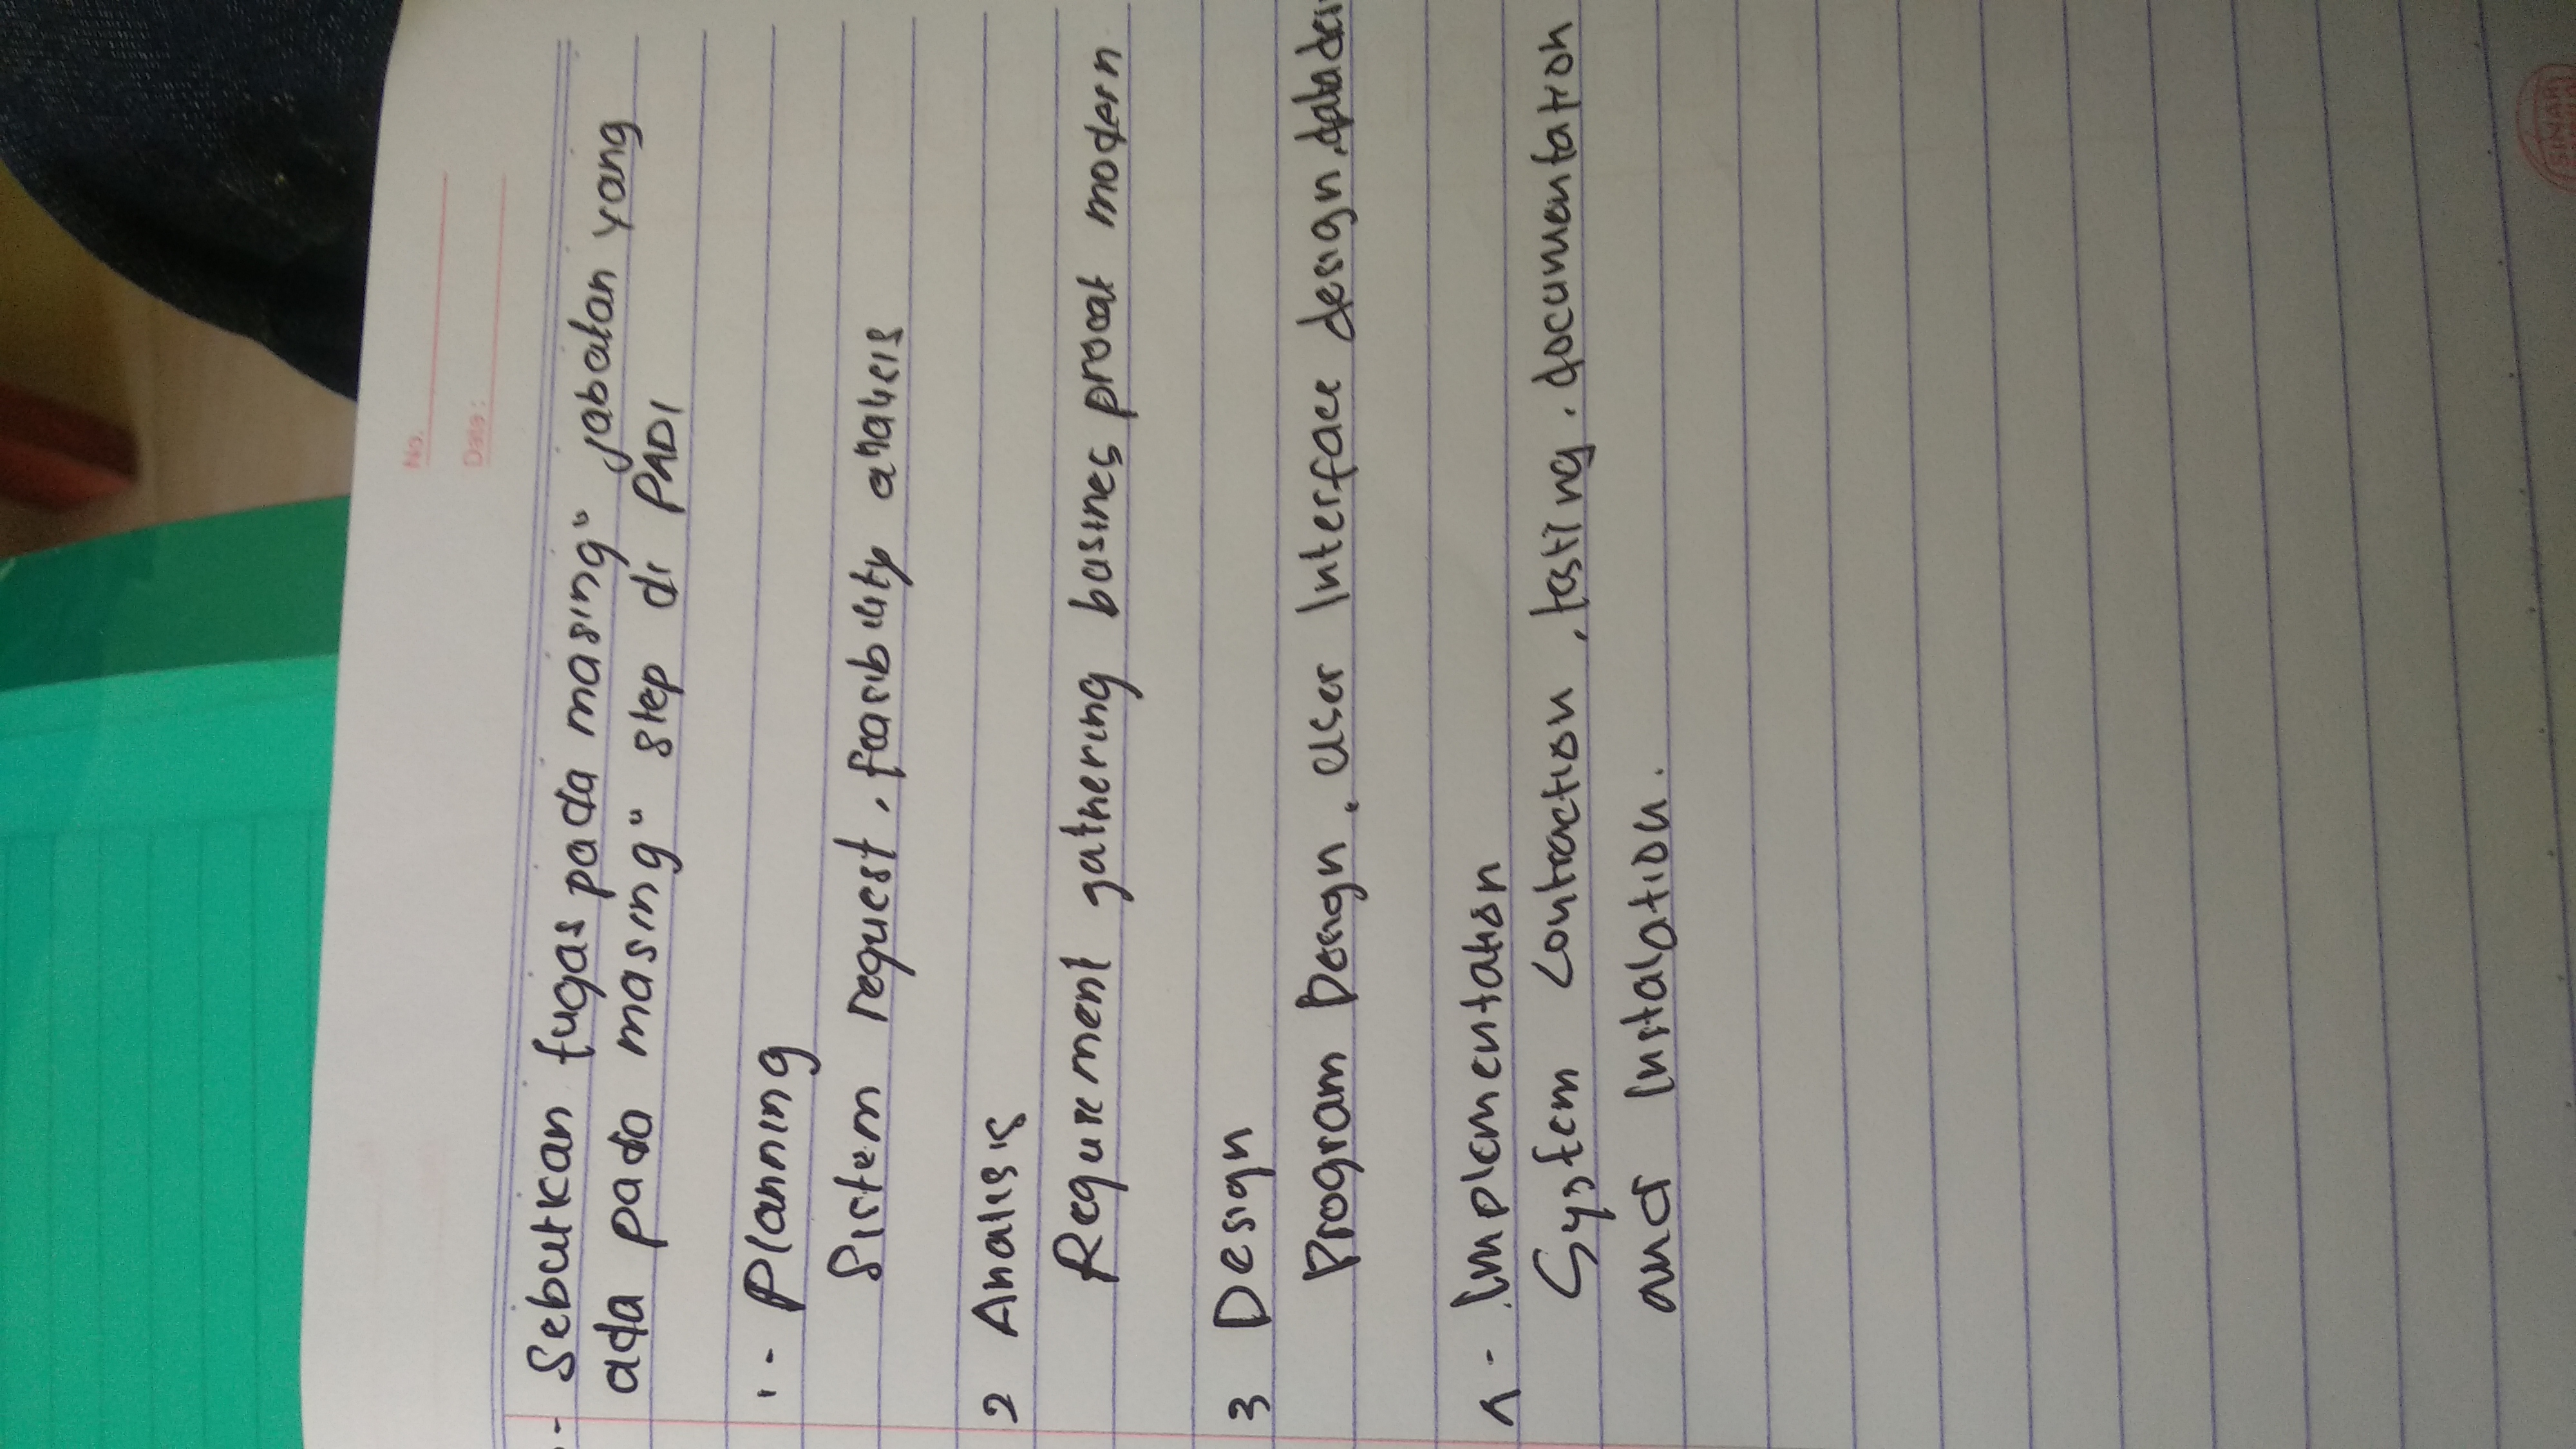 No.
Date:
- Sebutkan tugas pada masing" jabatan yang
ada pada masing" step di PADI
1- Planning
Sistem request, feasibility analisis
2 Analisis
Requirement gathering busines procat modern
3 Design
Program Design, user Interface design,
1- Implementation
System contraction, testing, documentation
and Instalation.
SINAR